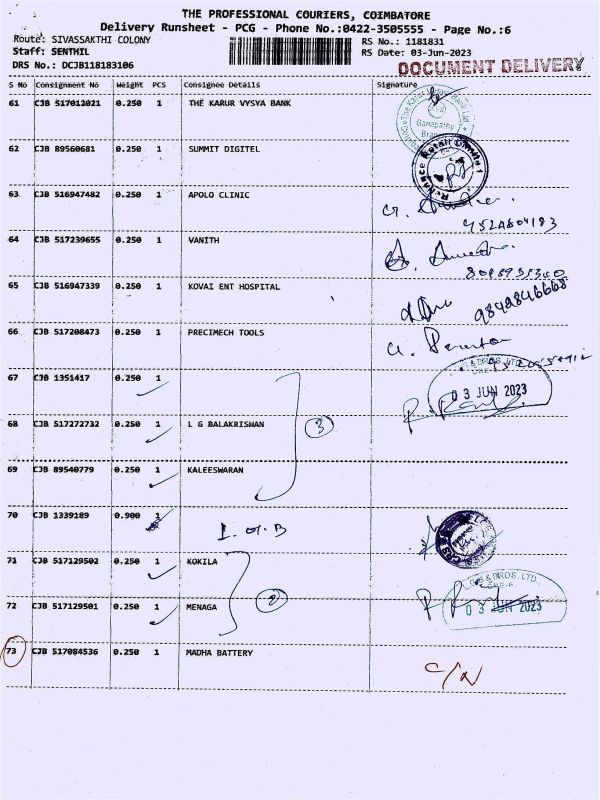 THE PROFESSIONAL COURIERS, COIMBATORE
Delivery Runsheet - PCG - Phone No.:0422-3505555 - Page No.:6
Route: SIVASSAKTHI COLONY
RS No.: 1181831
Staff: SENTHIL
RS Date: 03-Jun-2023
DRS No.: DCJB118183106
DOCUMENT DELIVERY
S No Consignment No Weight PCS Consignee Details Signature
61 CJB 517012021 0.250 1 THE KARUR VYSYA BANK
Ganapathy
62 CJB 89560681 0.250 1 SUMMIT DIGITEL
63 CJB 516947482 0.250 1 APOLO CLINIC
64 CJB 517239655 0.250 1 VANITH
65 CJB 516947339 0.250 1 KOVAI ENT HOSPITAL
66 CJB 517208473 0.250 1 PRECIMECH TOOLS
67 CJB 1351417 0.250 1
03 JUN 2023
68 CJB 517272732 0.250 1 L G BALAKRISHAN
3
69 CJB 89540779 0.250 1 KALEESWARAN
70 CJB 1339189 0.900 1
71 CJB 517129502 0.250 1 KOKILA
& BROS. LTD
72 CJB 517129501 0.250 1 MENAGA
2
03 JUN 2023
73 CJB 517084536 0.250 1 MADHA BATTERY
C/N